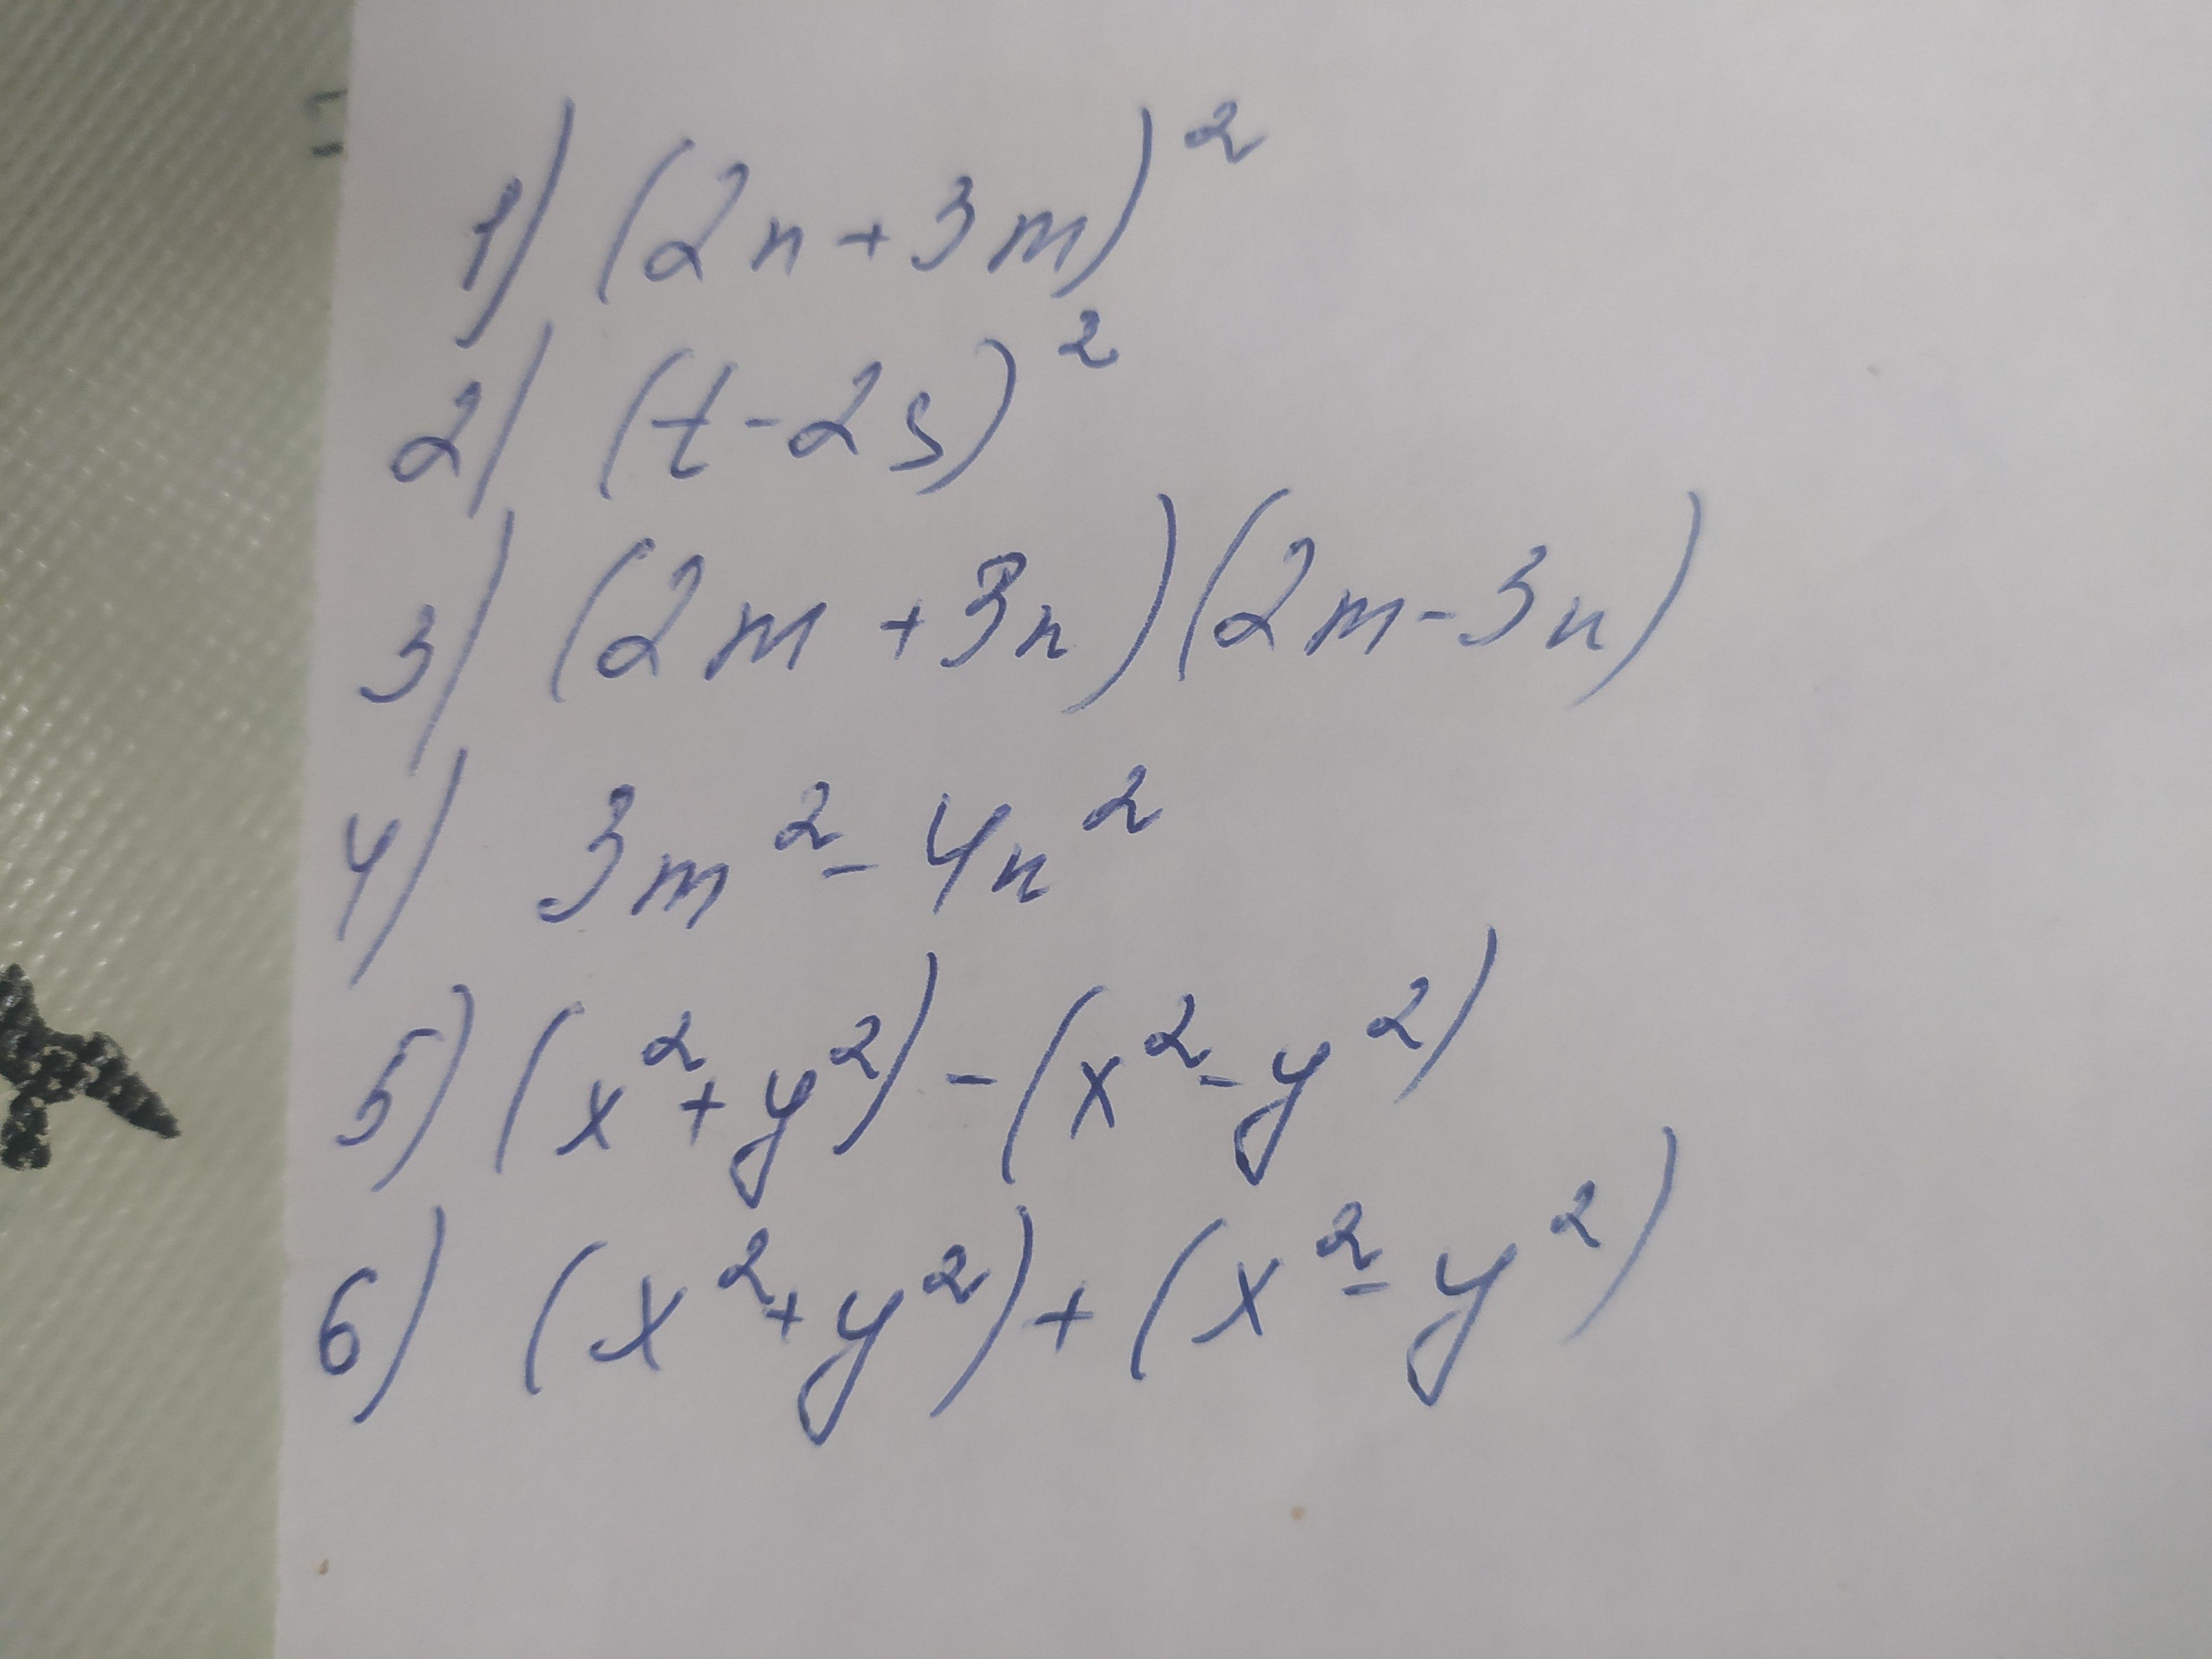 1) (2n+3m)²
2) (t-2s)²
3) (2m+3n)(2m-3n)
4) 3m²-4n²
5) (x²+y²)-(x²-y²)
6) (x²+y²)+(x²-y²)